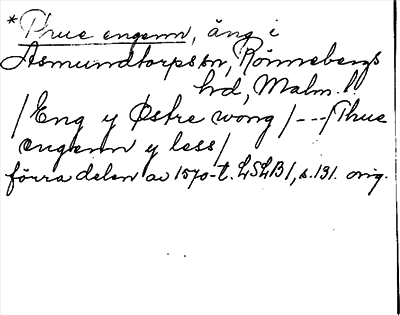 *Thue engenn, äng i
Asmundtorps sn, Rönnebergs
hd, Malm. l.
/Eng y Østre wong/---/Thue
engenn y less/
förra delen av 1570-t. LSLB1, s. 131. orig.